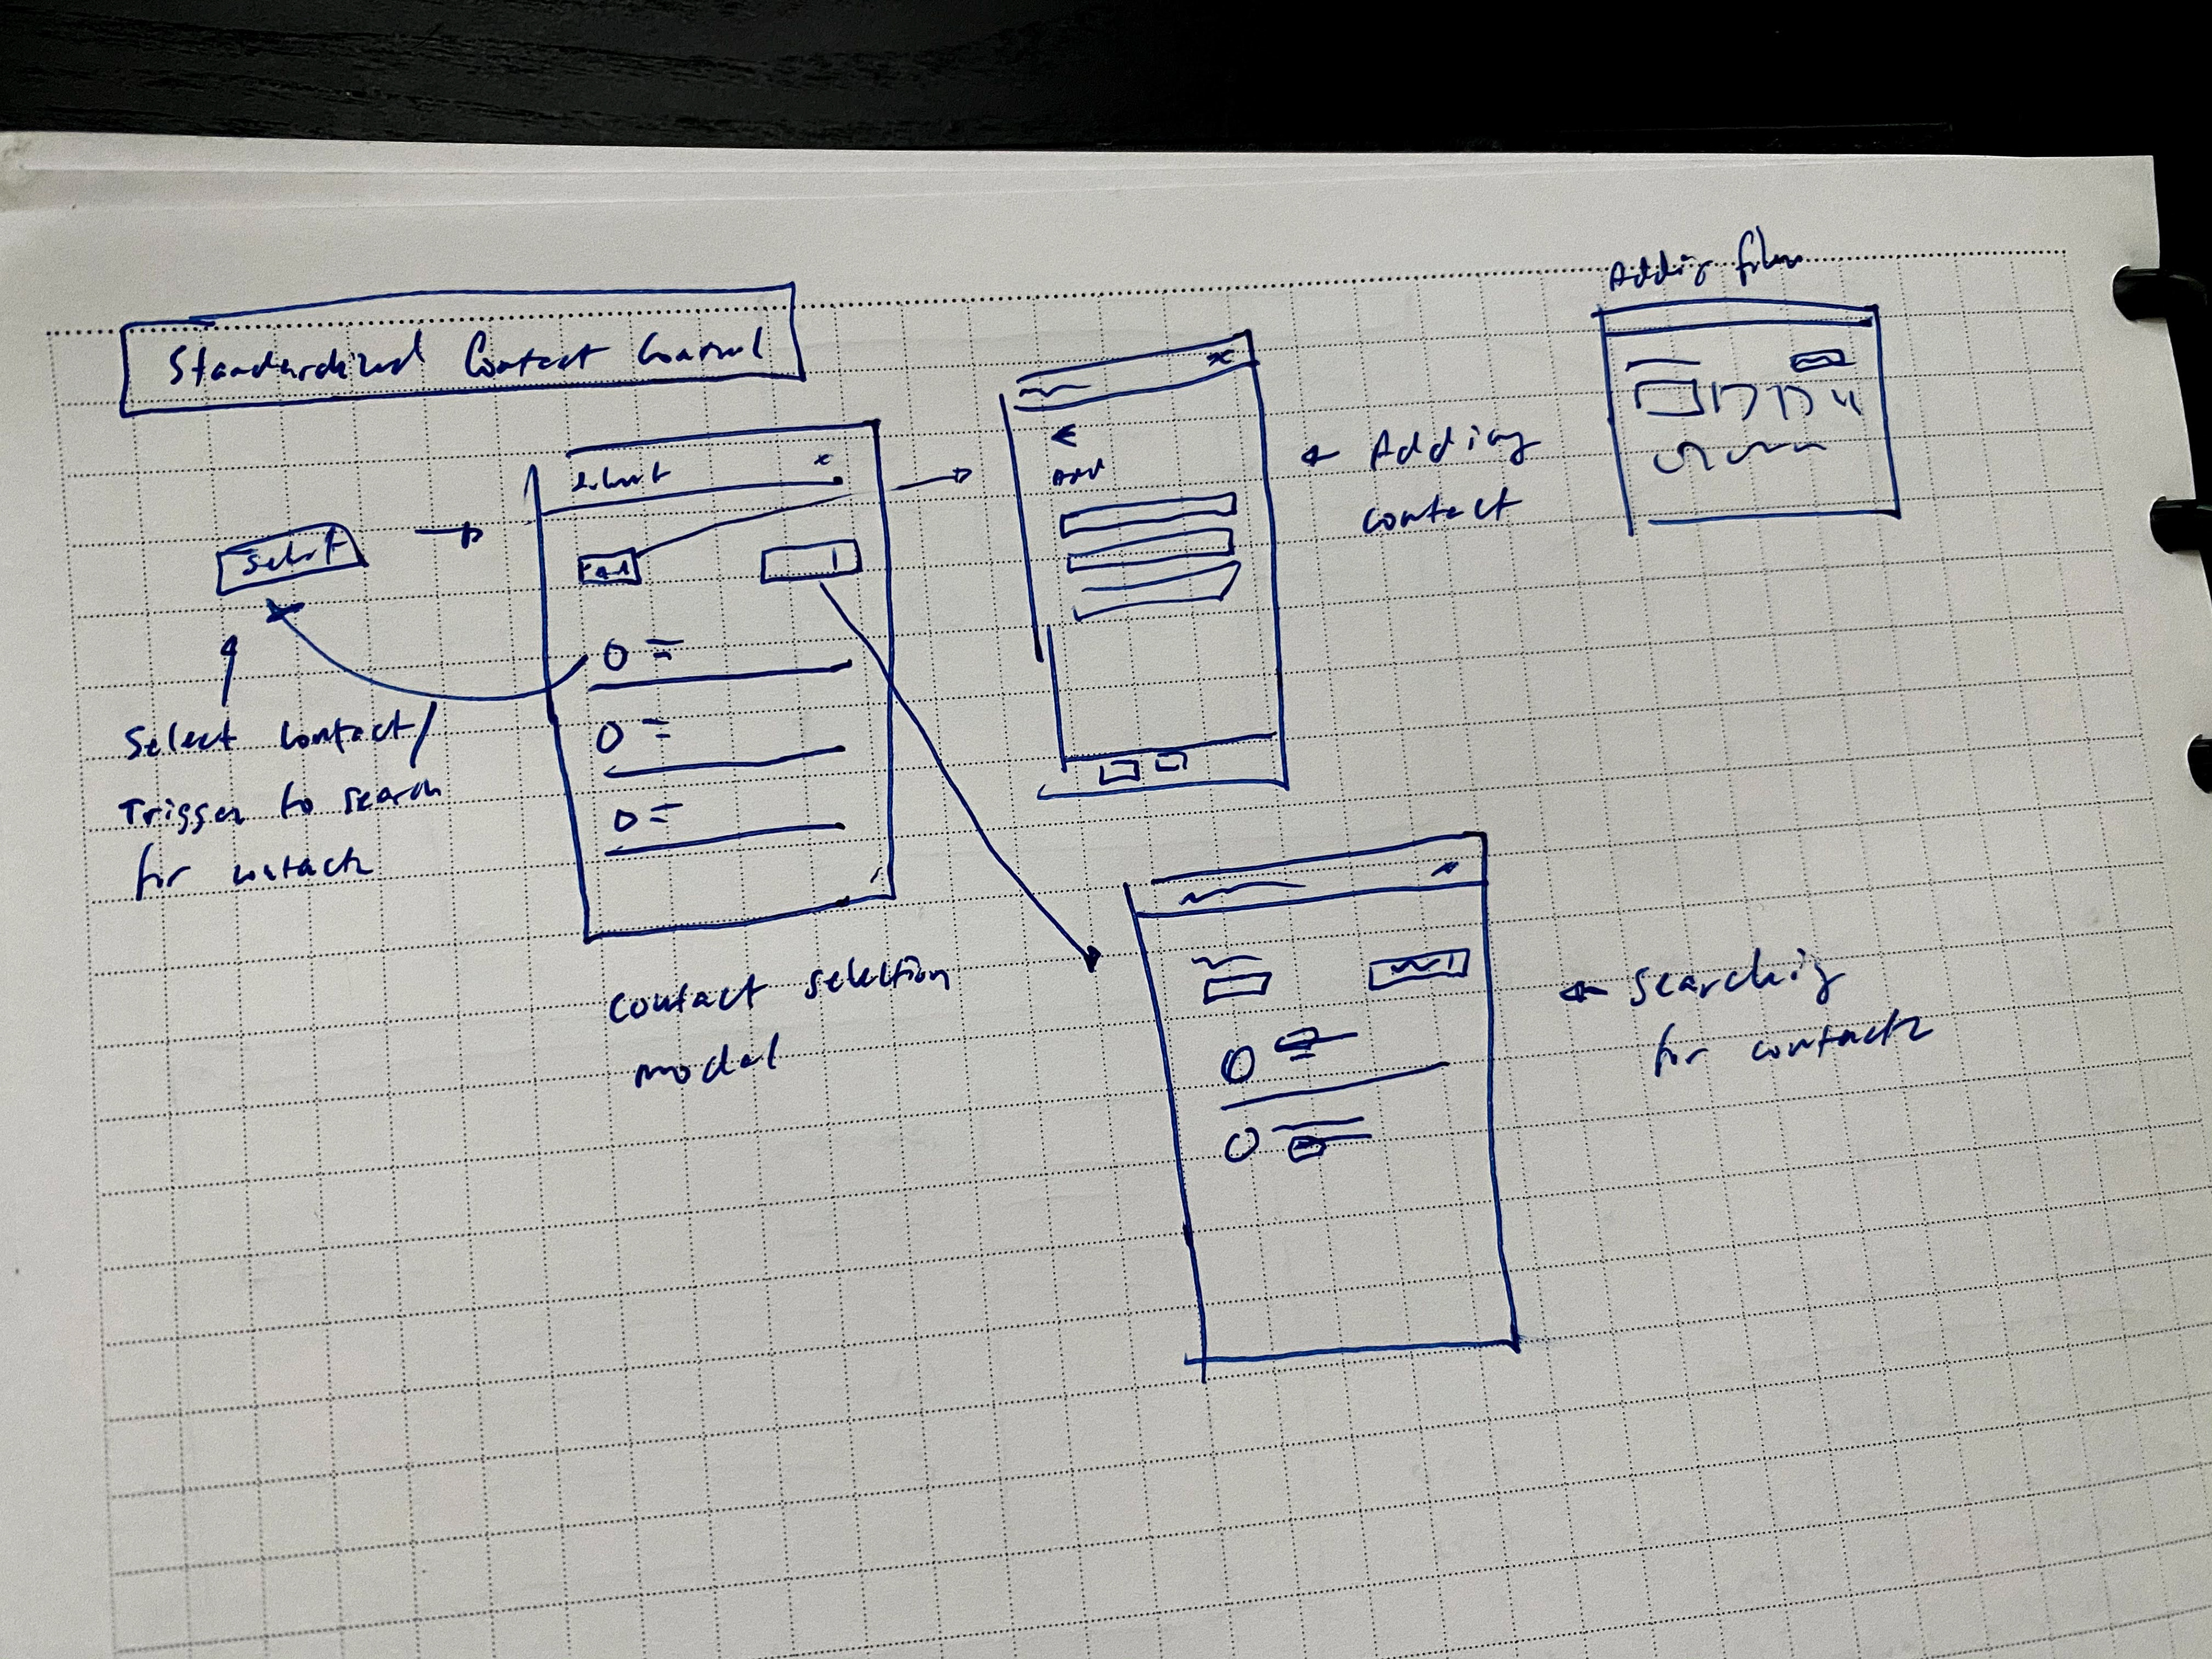 Standardized Contact Control
Adding files
Select
Select
x
Add
x
Add
← Adding
contact
Select contact/
Trigger to search
for contacts
contact selection
modal
x
← Searching
for contacts